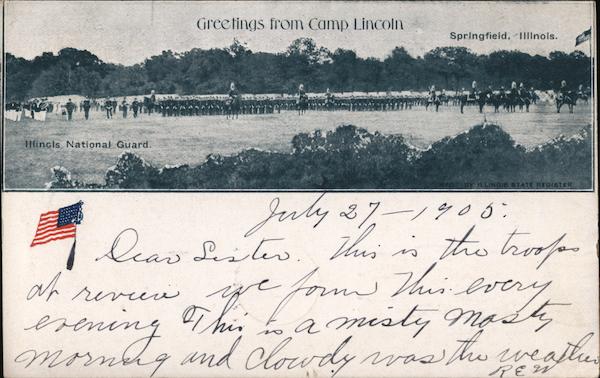 Greetings from Camp Lincoln
Springfield, Illinois.
Illinois National Guard.
BY ILLINOIS STATE REGISTER
July 27-1905.
Dear Sister. This is the troops
at review we form this every
evening This is a misty Nasty
morning and clowdy was the weather
REW